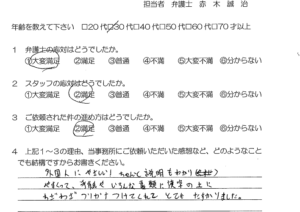 担当者 弁護士 赤木 誠治
年齢を教えて下さい □20代 □30代 □40代 □50代 □60代 □70才以上
1 弁護士の応対はどうでしたか。
①大変満足 ②満足 ③普通 ④不満 ⑤大変不満 ⑥分からない
2 スタッフの応対はどうでしたか。
①大変満足 ②満足 ③普通 ④不満 ⑤大変不満 ⑥分からない
3 ご依頼された件の進め方はどうでしたか。
①大変満足 ②満足 ③普通 ④不満 ⑤大変不満 ⑥分からない
4 上記1～3の理由、当事務所にご依頼いただいた感想など、どのようなこと
でも結構ですからお書きください。
外国人に やさしい ちゃんと 説明も わかり
やすくって、 いろんな 書類に 漢字の上に
わざわざ フリガナ つけてくれて とても たすかりました。